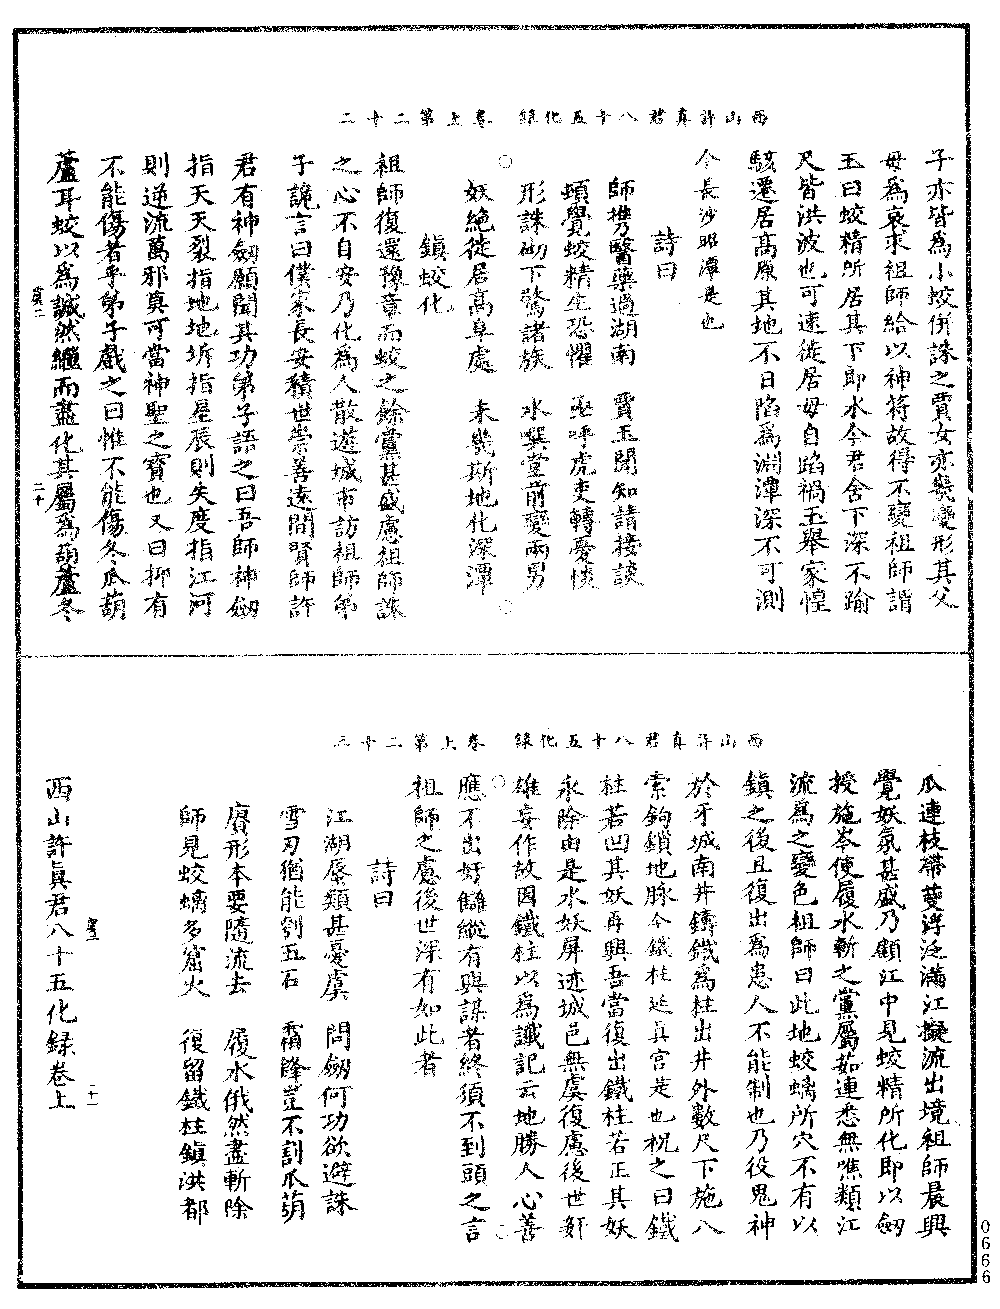 西山許真君八十五化錄　卷上第二十二
子亦皆為小蛟併誅之賈女亦幾變形其父
母為哀求祖師給以神符故得不變祖師謂
玉曰蛟精所居其下即水今君舍下深不踰
尺皆洪波也可速徙居毋自蹈禍玉舉家惶
駭遷居高原其地不日陷為淵潭深不可測
今長沙昭潭是也
詩曰
師携乃醫藥過湖南　賈玉聞知請接談
頓覺蛟精生恐懼　亟呼虎吏轉憂惔
形誅砌下驚諸族　水噀堂前變兩男
妖絕徙居高阜處　未幾斯地化深潭
鎮蛟化
祖師復還豫章而蛟之餘黨甚盛慮祖師誅
之心不自安乃化為人散遊城市訪祖師弟
子詭言曰僕家長安積世崇善遠聞賢師許
君有神劒願聞其功弟子語之曰吾師神劒
指天天裂指地地坼指星辰則失度指江河
則逆流萬邪莫可當神聖之寶也又曰抑有
不能傷者乎弟子戲之曰惟不能傷冬瓜葫
蘆耳蛟以為誠然繼而盡化其屬為葫蘆冬
二十
西山許真君八十五化錄　卷上第二十三
瓜連枝帶蔓浮泛滿江擬流出境祖師晨興
覺妖氛甚盛乃顧江中見蛟精所化即以劒
授施岑使履水斬之黨屬茹連悉無噍類江
流為之變色祖師曰此地蛟螭所穴不有以
鎮之後且復出為患人不能制也乃役鬼神
於牙城南井鑄鐵為柱出井外數尺下施八
索鈎鎖地脉今鐵柱延真宮是也祝之曰鐵
柱若凹其妖再興吾當復出鐵柱若正其妖
永除由是水妖屏迹城邑無虞復慮後世奸
雄妄作故因鐵柱以為讖記云地勝人心善
應不出奸讎縱有興謀者終須不到頭之言
祖師之慮後世深有如此者
詩曰
江湖蜃類甚憂虞　問劒何功欲避誅
雪刃猶能刳五石　霜鋒豈不割瓜葫
贗形本要隨流去　履水俄然盡斬除
師見蛟螭多窟穴　復留鐵柱鎮洪都
西山許真君八十五化錄卷上
0666